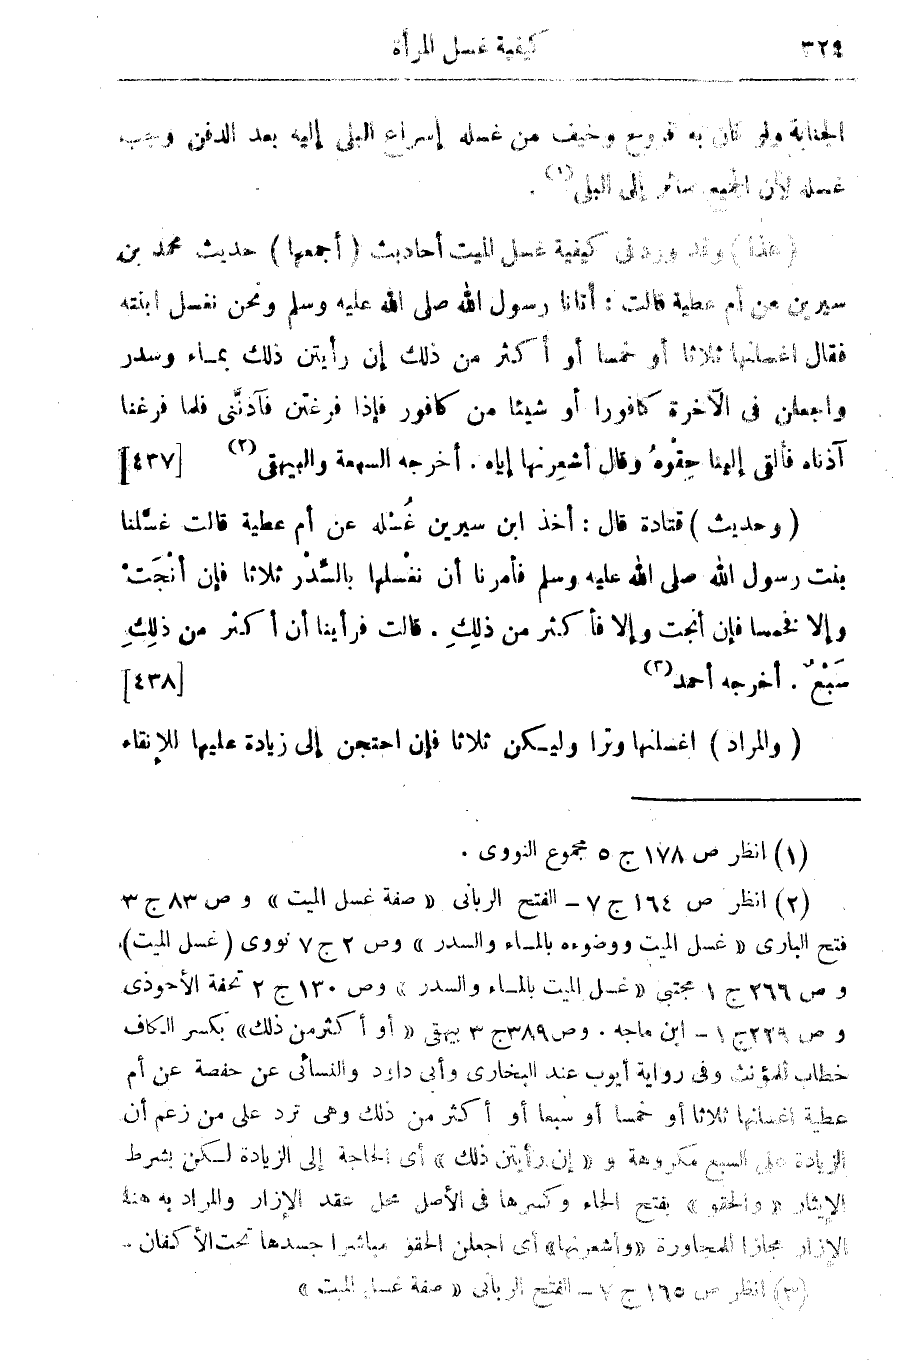 ٣٢٤ كيفية غسل المرأة
الجنابة ولو كان به قروح وخيف من غسله إسراع البلى إليه بعد الدفن وجب
غسله لأن الجميع سائر إلى البلى(١) .
( هذا ) وقد ورد فى كيفية غسل الميت أحاديث ( أجمعها ) حديث محمد بن
سيرين عن أم عطية قالت : أتانا رسول الله صلى الله عليه وسلم ونحن نغسل ابنته
فقال اغسلنها ثلاثا أو خمسا أو أكثر من ذلك إن رأيتن ذلك بمـاء وسدر
واجعلن فى الآخرة كافورا أو شيئا من كافور فإذا فرغتن فآذنَّنى فلما فرغنا
آذناه فألقى إلينا حِقْوهُ وقال أشعِرنها إياه . أخرجه السبعة والبيهقى(٢) [٤٣٧]
( وحديث ) قتادة قال : أخذ ابن سيرين غُسْله عن أم عطية قالت غسَّلنا
بنت رسول الله صلى الله عليه وسلم فأمرنا أن نغْسلها بالسِّدْر ثلاثا فإن أنْجَتْ
وإلا فخمسا فإن أنجت وإلا فأكثر من ذلِكِ . قالت فرأينا أن أكثر من ذلِكِ
سَبْعٌ . أخرجه أحمد(٣) [٤٣٨]
( والمراد ) اغسلنها وترا وليـكن ثلاثا فإن احتجن إلى زيادة عليها للإنقاء
(١) انظر ص ١٧٨ ج ٥ مجموع النووى .
(٢) انظر ص ١٦٤ ج ٧ – الفتح الربانى « صفة غسل الميت » و ص ٨٣ ج ٣
فتح البارى « غسل الميت ووضوءه بالمـاء والسدر » وص ٢ ج ٧ نووى ( غسل الميت ).
و ص ٢٦٦ ج ١ مجتبى « غسل الميت بالمـاء والسدر » وص ١٣٠ ج ٢ تحفة الأحوذى
و ص ٢٢٩ج ١ – ابن ماجه . وص ٣٨٩ج ٣ بيهقى « أو أكثر من ذلك» بكسر الـكاف
خطاب للمؤنث وفى رواية أيوب عند البخارى وأبى داود والنسائى عن حفصة عن أم
عطية اغسلنها ثلاثا أو خمسا أو سبعا أو أكثر من ذلك وهى ترد على من زعم أن
الزيادة على السبع مكروهة و « إن رأيتن ذلك » أى الحاجة إلى الزيادة لـكن بشرط
الإيتار « والحقو » بفتح الحاء وكسرها فى الأصل محل عقد الإزار والمراد به هنا
الإزار مجازا للمجاورة «وأشعرنها» أى اجعلن الحقو مباشرا جسدها تحت الأكفان –
(٣) انظر ص ١٦٥ ج ٧ – الفتح الربانى « صفة غسل الميت »